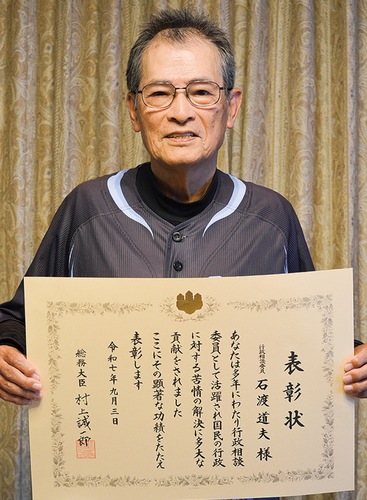 表彰状
行政相談委員
石渡道夫様
あなたは多年にわたり行政相談
委員として活躍され国民の行政
に対する苦情の解決に多大な
貢献をされました
ここにその顕著な功績をたたえ
表彰します
令和七年九月三日
総務大臣 村上誠一郎